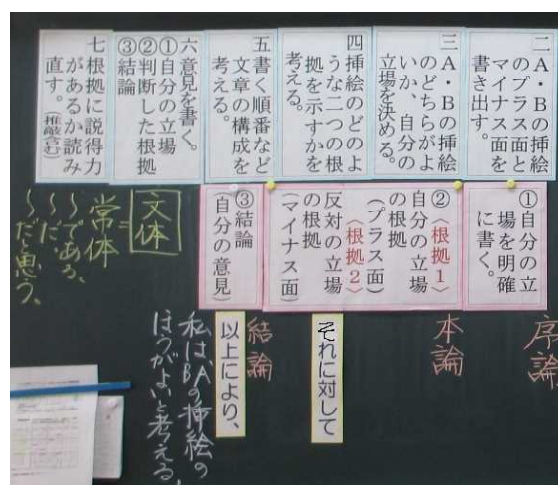 二A・Bの挿絵
のプラス面と
マイナス面を
書き出す。
三A・Bの挿絵
のどちらがよ
いか、自分の
立場を決める。
四挿絵のどのよ
うな二つの根
拠を示すかを
考える。
五書く順番など
文章の構成を
考える。
六意見を書く。
①自分の立場
②判断した根拠
③結論
七根拠に説得力
があるか読み
直す。(推敲含む)
①自分の立
場を明確
に書く。
②〈根拠1〉
自分の立場
の根拠
(プラス面)
〈根拠2〉
反対の立場
の根拠
(マイナス面)
③結論
(自分の意見)
文体
=
常体
〜である、
〜だ、
〜だと思う、
序論
本論
それに対して
結論
以上により、
私は、BAの挿絵の
ほうがよいと考える。